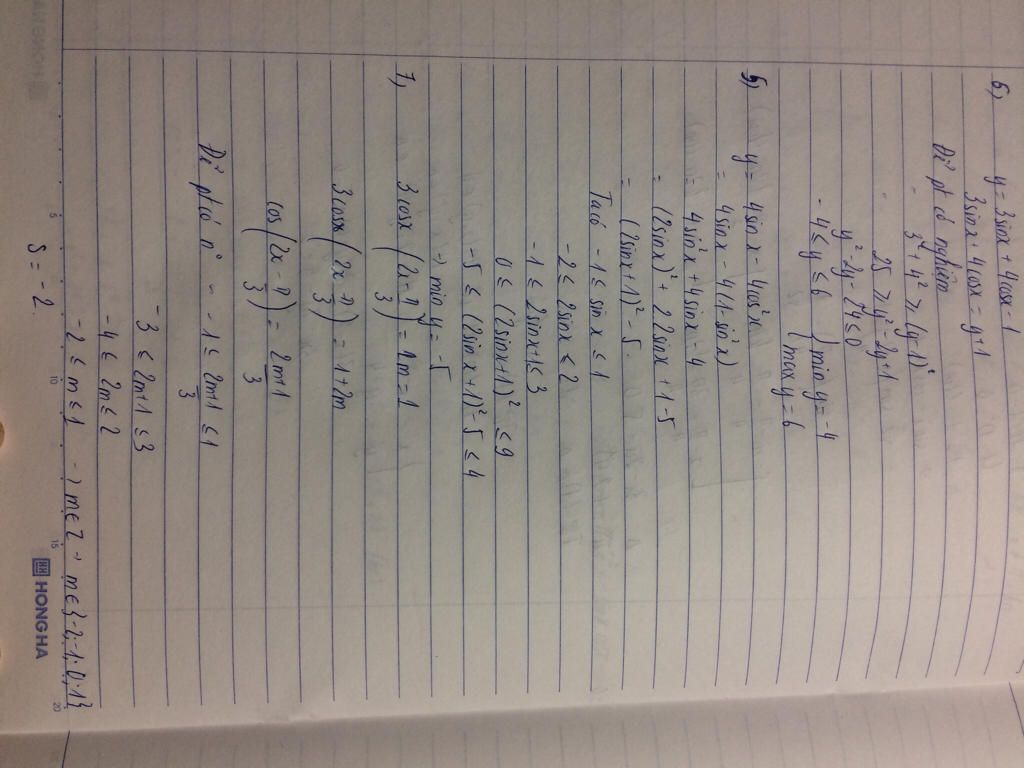 6) y = 3sinx + 4cosx - 1
3sinx + 4cosx = y + 1
Để pt có nghiệm
3² + 4² ≥ (y-1)²
25 ≥ y² - 2y + 1
y² - 2y - 24 ≤ 0
-4 ≤ y ≤ 6 { min y = -4
max y = 6
5) y = 4sinx - 4cos²x
= 4sinx - 4(1-sin²x)
= 4sin²x + 4sinx - 4
= (2sinx)² + 2 2sinx + 1 - 5
= (2sinx+1)² - 5.
Ta có -1 ≤ sinx ≤ 1
-2 ≤ 2sinx ≤ 2
-1 ≤ 2sinx+1 ≤ 3
0 ≤ (2sinx+1)² ≤ 9
-5 ≤ (2sinx+1)² - 5 ≤ 4
→ min y = -5
7) 3cosx (2x - π/3) - 2m = 1
3cosx (2x - π/3) = 1 + 2m
cos (2x - π/3) = 2m+1/3
Để pt có n° - -1 ≤ 2m+1/3 ≤ 1
-3 ≤ 2m+1 ≤ 3
-4 ≤ 2m ≤ 2
-2 ≤ m ≤ 1 → m ∈ Z → m ∈ {-2,-1,0,1}
S = -2.
5 10 15 20
HONG HA